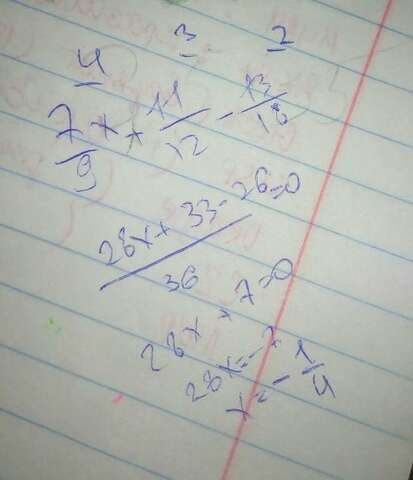 4 3 2
7/9 x + 11/12 - 13/18
28x + 33 - 26 = 0
36
28x + 7 = 0
28x = -7
x = - 1/4